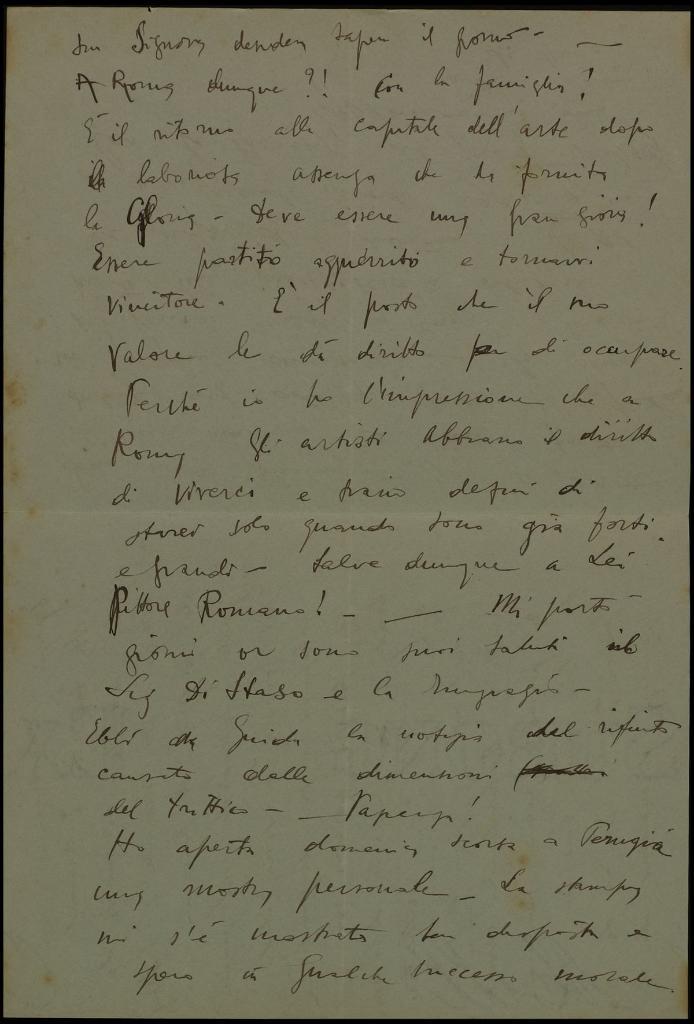 Sua Signora desidera sapere il giorno —
A Roma dunque?! Con la famiglia!
È il ritorno alla capitale dell'arte dopo
la laboriosa assenza che dà fornito
la Gloria — Deve essere una gran gioia!
Essere partito agguerrito e tornarvi
vincitore. È il posto che il suo
valore le dà diritto di occupare.
Perché io ho l'impressione che a
Roma gli artisti abbiano il diritto
di viverci e siano degni di
starci solo quando sono già forti
e grandi — Salve dunque a Lei
Pittore Romano! — — Mi portò
giorni or sono suoi saluti il
Sig Di Staso e la ringrazio —
Ebbi da Guido la notizia del rifiuto
causato dalle dimensioni
del trittico — — Pazienza!
Ho aperta domenica scorsa a Perugia
una mostra personale — La stampa
mi s'è mostrata ben disposta e
spero in qualche successo morale.